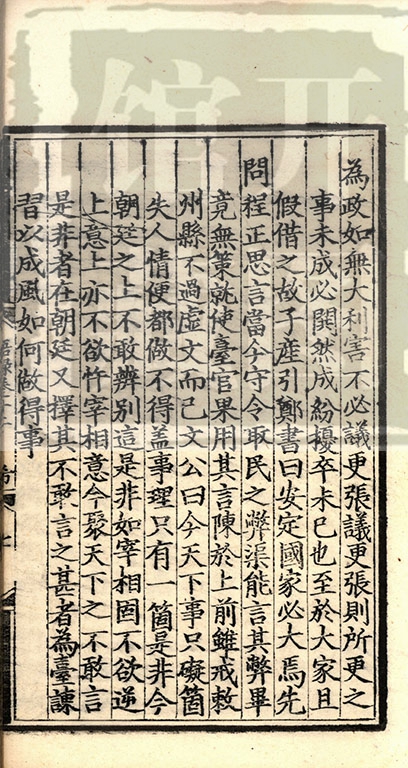 為政如無大利害不必議更張議更張則所更之
事未成必鬨然成紛擾卒未已也至於大家且
假借之故子產引鄭書曰安定國家必大焉先
問程正思言當今守令取民之弊渠能言其弊畢
竟無策就使臺官果用其言陳於上前雖戒敕
州縣不過虛文而已文公曰今天下事只礙箇
失人情便都做不得蓋事理只有一箇是非今
朝廷之上不敢辨別這是非如宰相固不欲逆
上意上亦不欲忤宰相意今聚天下之不敢言
是非者在朝廷又擇其不敢言之甚者為臺諫
習以成風如何做得事